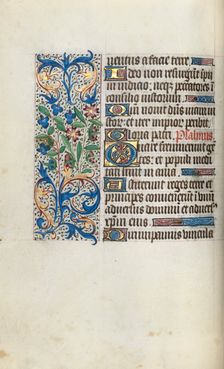 ventus a facie terre
Ideo non resurgunt ipii
in iudicio: neqz peccatores i
consilio iustorum
Qm nouit dñs viam iu
stor: et iter impior peribit
Gloria patri. Psalmus
Quare fremuerunt gẽ
tes: et populi medi
tati sunt in ania
Astiterunt reges terre et
principes conuenerunt i vnũ
aduersus dominũ et aduers9
xpm eius
Dirumpamus vincula